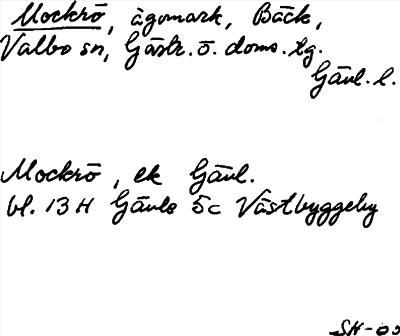 Mockrö, ägomark, Bäck,
Valbo sn, Gästr. ö. doms. tg.
Gävl. l.
Mockrö, ek Gävl.
bl. 13 H Gävle 5c Västbyggeby
SH-03